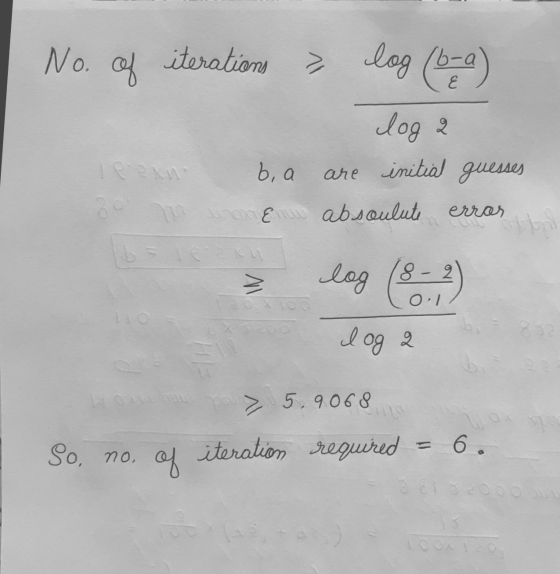 No. of iterations ≥ log (b-a/ε) / log 2
b, a are initial guesses
ε absoulute error
≥ log (8 - 2/0.1) / log 2
≥ 5.9068
So, no. of iteration required = 6.